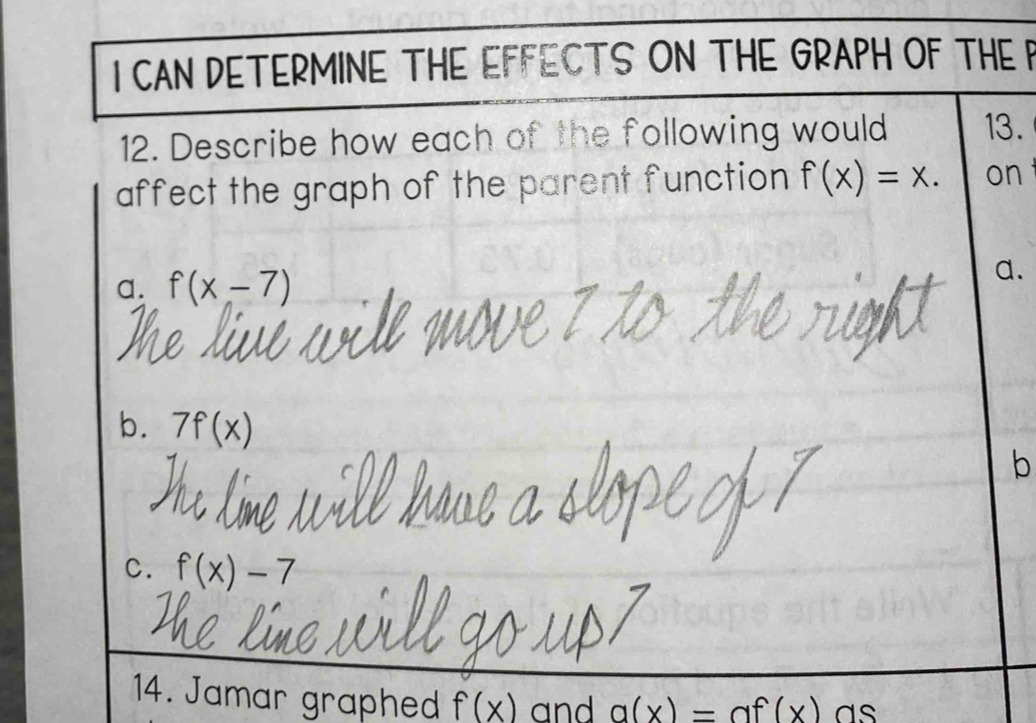 I CAN DETERMINE THE EFFECTS ON THE GRAPH OF THE
12. Describe how each of the following would
affect the graph of the parent function f(x) = x.
a. f(x – 7)
The line will move 7 to the right
b. 7f(x)
The line will have a slope of 7
c. f(x) – 7
The line will go up 7
13.
on
a.
b
14. Jamar graphed f(x) and g(x) = af(x) as